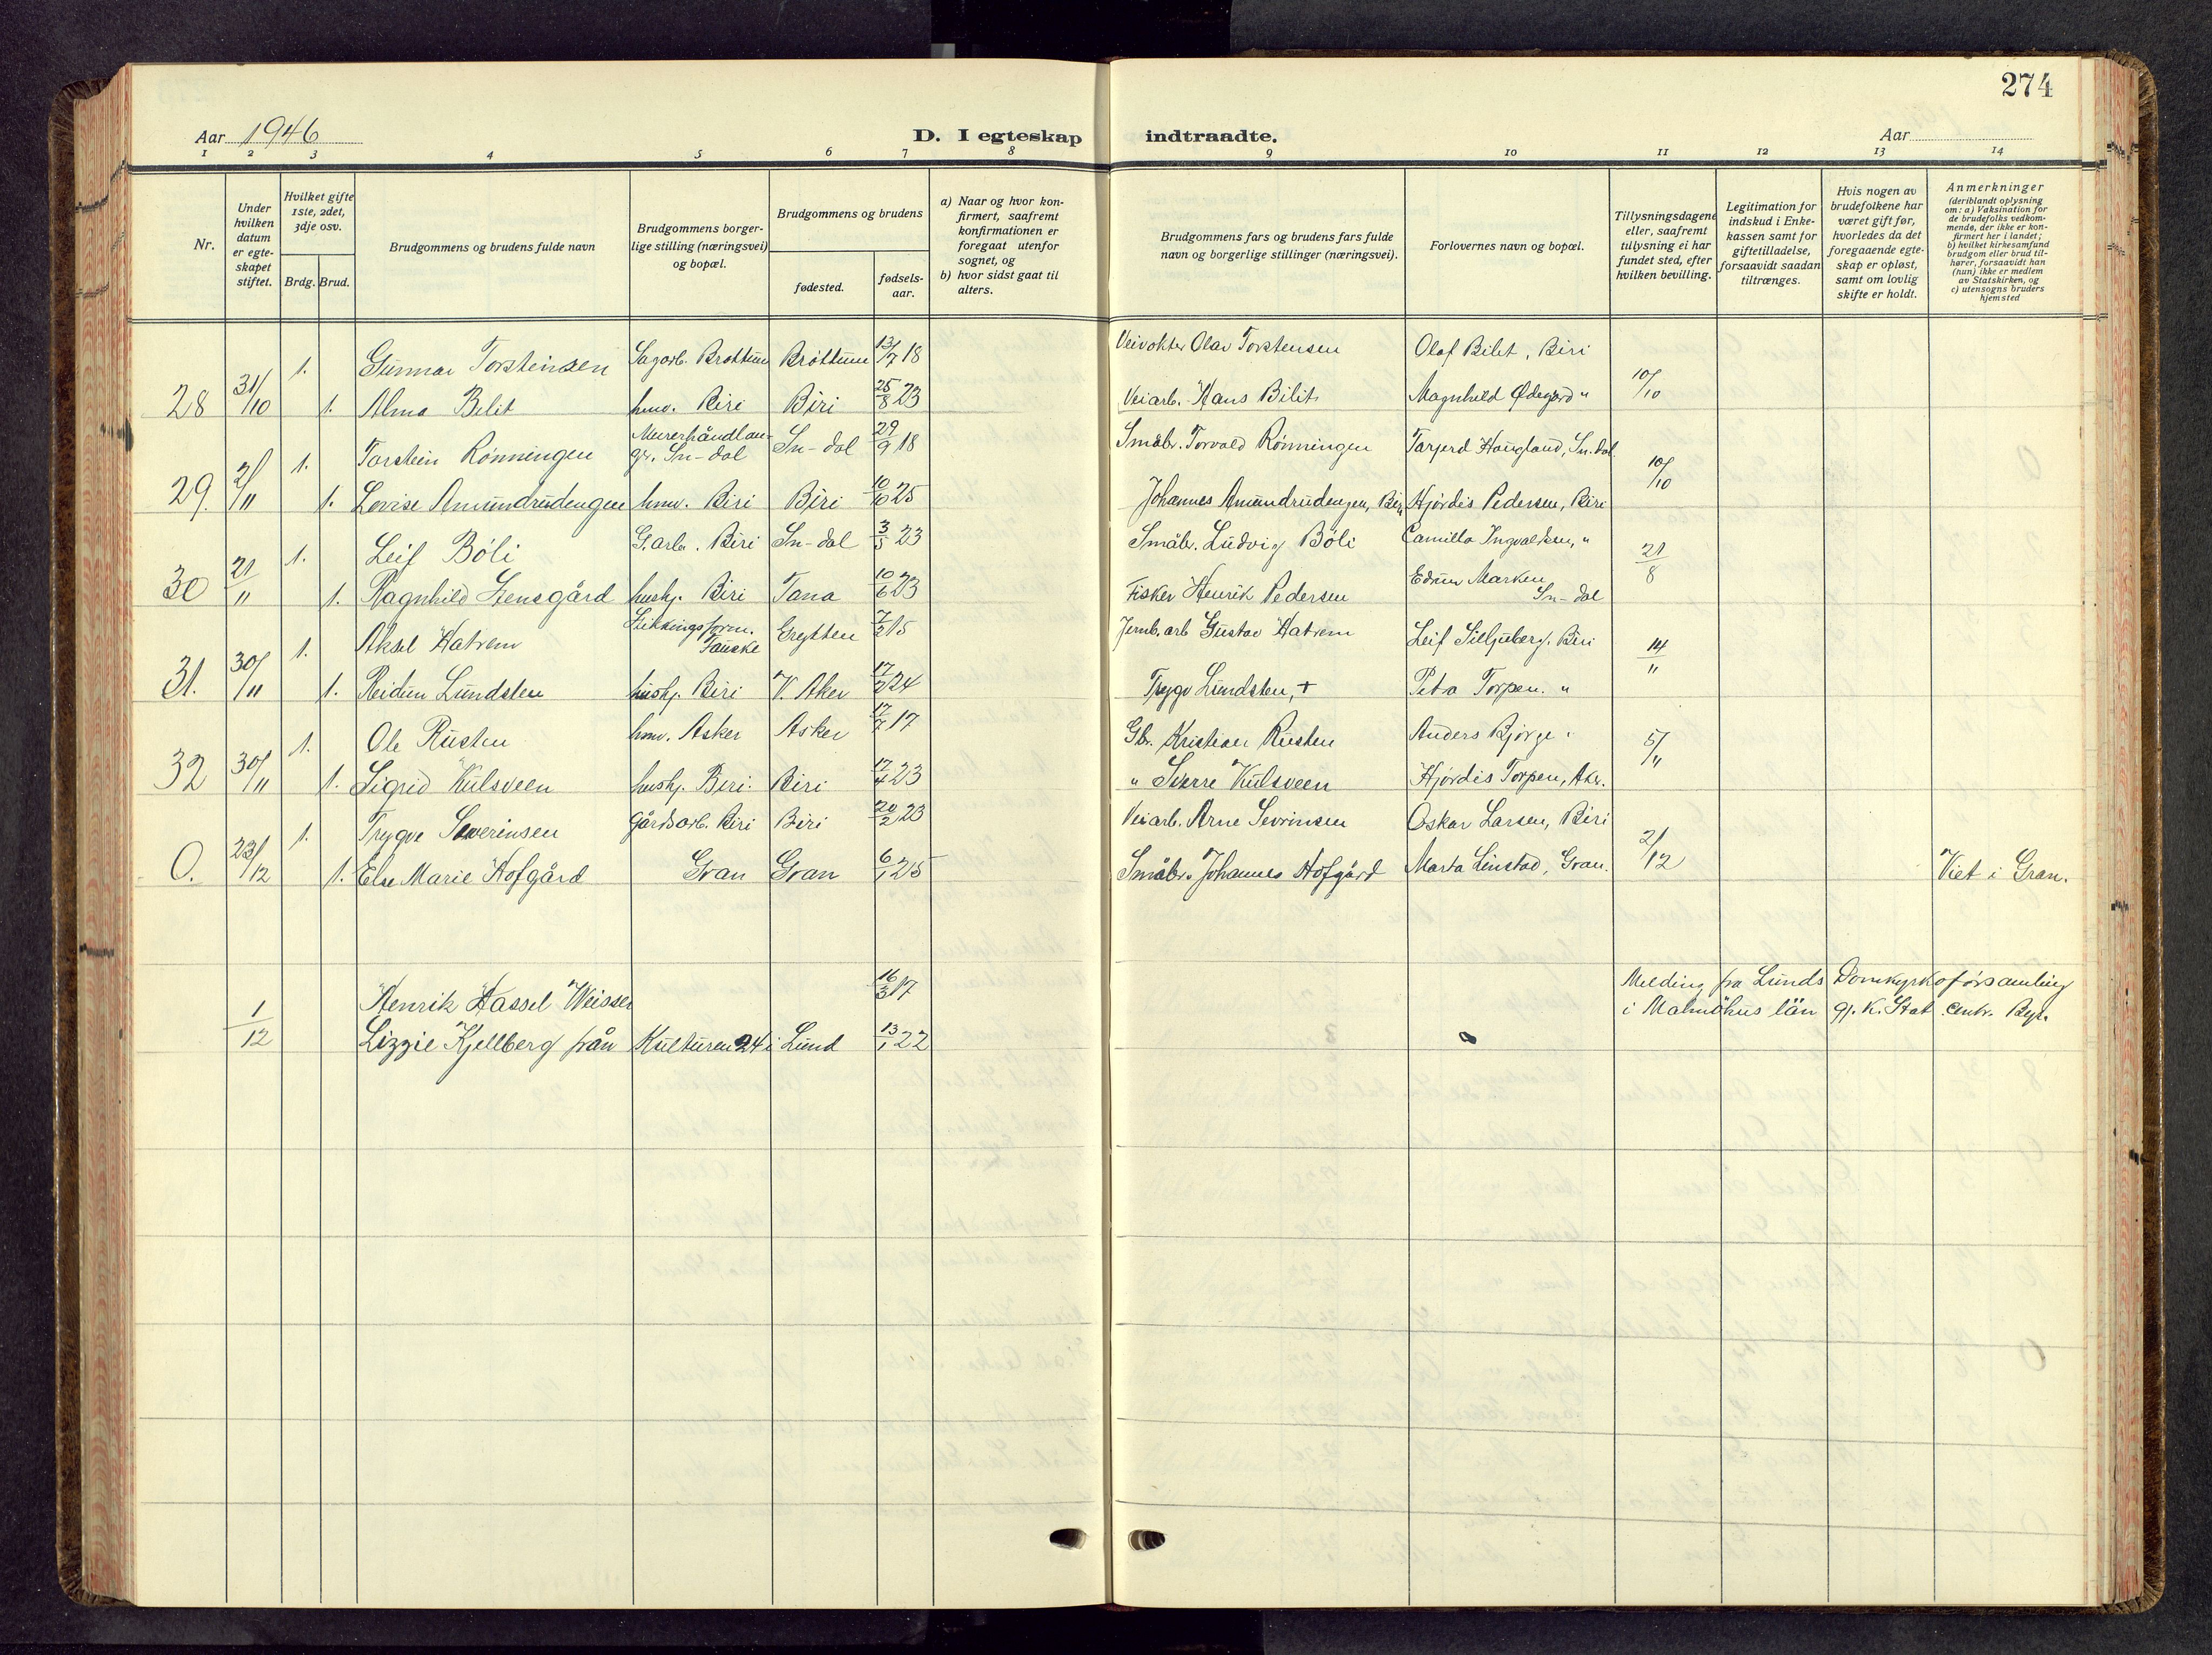 274
Aar 1946
D. I egteskap indtraadte.
Aar
1 2 3 4 5 6 7 8 9 10 11 12 13 14
Nr.
Under hvilken datum er egteskapet stiftet.
Hvilket gifte 1ste, 2det, 3dje osv.
Brdg. Brud.
Brudgommens og brudens fulde navn
Brudgommens borgerlige stilling (næringsvei) og bopæl.
Brudgommens og brudens
fødested.
fødselsaar.
a) Naar og hvor konfirmert, saafremt konfirmationen er foregaat utenfor sognet, og
b) hvor sidst gaat til alters.
Brudgommens fars og brudens fars fulde navn og borgerlige stillinger (næringsvei).
Forlovernes navn og bopæl.
Tillysningsdagene eller, saafremt tillysning ei har fundet sted, efter hvilken bevilling.
Legitimation for indskud i Enkekassen samt for giftetilladelse, forsaavidt saadan tiltrænges.
Hvis nogen av brudefolkene har været gift før, hvorledes da det foregaaende egteskap er opløst, samt om lovlig skifte er holdt.
Anmerkninger (deriblandt oplysning om: a) Vaksination for de brudefolks vedkommende, der ikke er konfirmert her i landet; b) hvilket kirkesamfund brudgom eller brud tilhører, forsaavidt han (hun) ikke er medlem av Statskirken, og c) utensogns bruders hjemsted
1. Gunnar Torsteinsen Sagarb. Brøttum Brøttum 13/7 18 Veivokter Olav Torstensen Olaf Bilit, Biri
28 31/10 1. Alma Bilit hmv. Biri Biri 25/8 23 Veiarb. Hans Bilit Magnhild Ødegård " 10/10
1. Torstein Rönningen Murerhåndlanger. Sn-dal Sn-dal 29/9 18 Småbr. Torvald Rönningen Tarjerd Haugland, Sn.dal
29. 2/11 1. Lovise Amundrudengen hmv. Biri Biri 10/10 25 Johannes Amundrudengen, Biri Hjördis Pedersen, Biri 10/10
1. Leif Böli G.arb. Biri Sn-dal 3/5 23 Småbr. Ludvig Böli Camilla Ingvaldsen, "
30 21/11 1. Ragnhild Stensgård hushj. Biri Tana 10/6 23 Fisker Henrik Pedersen Edrun Marken Sn-dal 21/8
1. Aksel Hatrem Stikningsform. Fauske Grytten 7/2 15 Jernb.arb Gustav Hatrem Leif Silljuberg. Biri
31. 30/11 1. Reidun Lundsten hushj. Biri V. Aker 17/2 24 Trygve Lundsten, + Petra Torpen. " 14/11
1. Ole Rusten hmv. Asker Asker 17/7 17 Gbr. Kristian Rusten Anders Bjørge "
32 30/11 1. Sigrid Kulsveen hushj. Biri. Biri 17/4 23 " Sverre Kulsveen Hjördis Torpen, Aker. 5/11
1. Trygve Severinsen Gårdsarb. Biri Biri 20/2 23 Veiarb. Arne Sevrinsen Oskar Larsen, Biri
0. 23/12 1. Else Marie Hofgård Gran Gran 6/1 25 Småbr. Johannes Hofgård Marta Linstad, Gran. 2/12 Viet i Gran.
Henrik Hassel Weisser 16/3 17 Melding fra Lunds Domkyrkoförsamling
1/12 Lizzie Kjellberg från Kulturen 24 i Lund 13/1 22 i Malmöhus län gj. K. Stat. Centr. Byr.